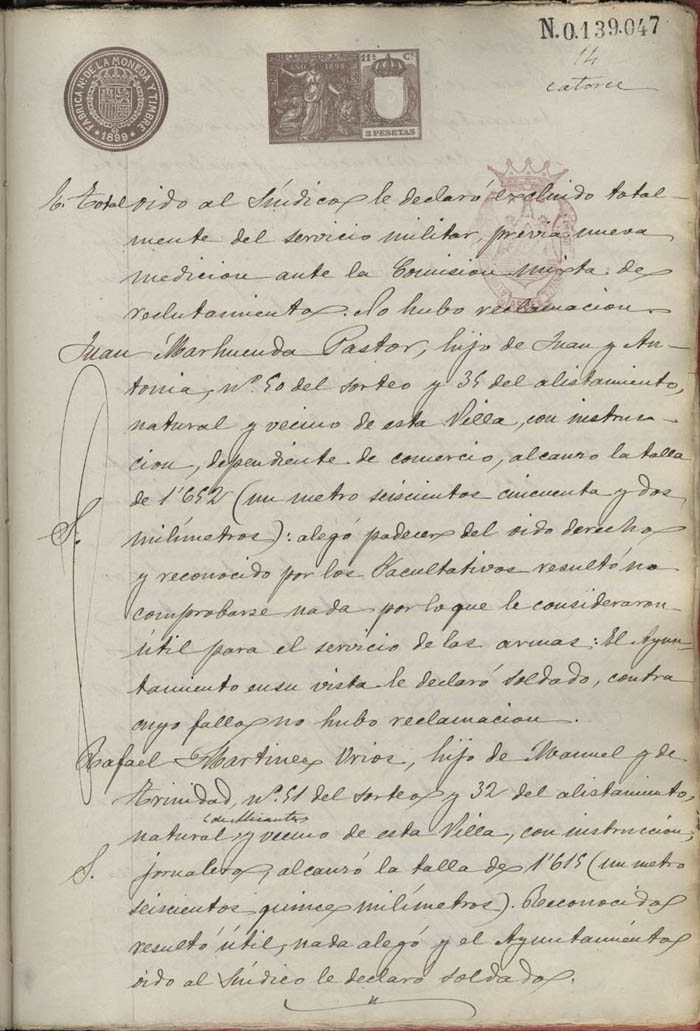 N.0.139.047
14
catorce
FABRICA Nal DE LA MONEDA Y TIMBRE
1898
AÑO 1898
11ª C.
2 PESETAS
E. Total oido al Síndico le declaró excluido total-
mente del servicio militar, previa nueva
medicion ante la Comision mixta de
reclutamiento. No hubo reclamacion.
Juan Marhuenda Pastor, hijo de Juan y An-
tonia, nº. 50 del sorteo y 35 del alistamiento,
natural y vecino de esta Villa, con instruc-
cion, dependiente de comercio, alcanzo la talla
de 1'652 (un metro seiscientos cincuenta y dos
S. milímetros): alegó padecer del oido derecho
y reconocido por los Facultativos resultó no
comprobarse nada por lo que le consideraron
útil para el servicio de las armas: El Ayun-
tamiento en su vista le declaró soldado, contra
cuyo fallo no hubo reclamacion.
Rafael Martinez Urios, hijo de Manuel y de
Trinidad, nº. 51 del sorteo y 32 del alistamiento,
de Alicante
natural y vecino de esta Villa, con instruccion,
S. jornalero, alcanzó la talla de 1'615 (un metro
seiscientos quince milímetros). Reconocido
resultó útil, nada alegó y el Ayuntamiento
oido al Síndico le declaró soldado.